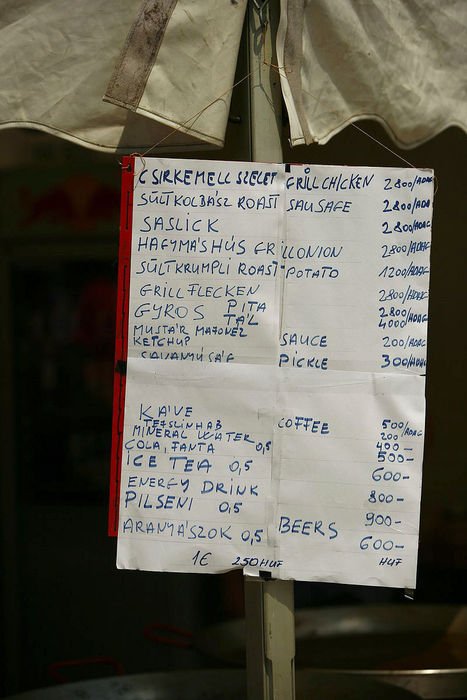 CSIRKEMELL SZELET GRILL CHICKEN 2800/ADAG
SÜLTKOLBÁSZ ROAST SAUSAFE 2800/ADAG
SASLICK 2800/ADAG
HAGYMÁSHÚS GRILLONION 2800/ADAG
SÜLTKRUMPLI ROAST POTATO 1200/ADAG
GRILL FLECKEN 2800/ADAG
GYROS PITA 2800
TÁL 4000/ADAG
MUSTÁR MAJONEZ
KETCHUP SAUCE 200/ADAG
SAVANYÚSÁG PICKLE 300/ADAG
KÁVÉ COFFEE 500/
TEJSZINHAB 200/ADAG
MINERAL WATER 0,5 400-
COLA, FANTA 500-
ICE TEA 0,5 600-
ENERGY DRINK 800-
PILSENI 0,5 900-
ARANYÁSZOK 0,5 BEERS 600-
1€ 250HUF HUF